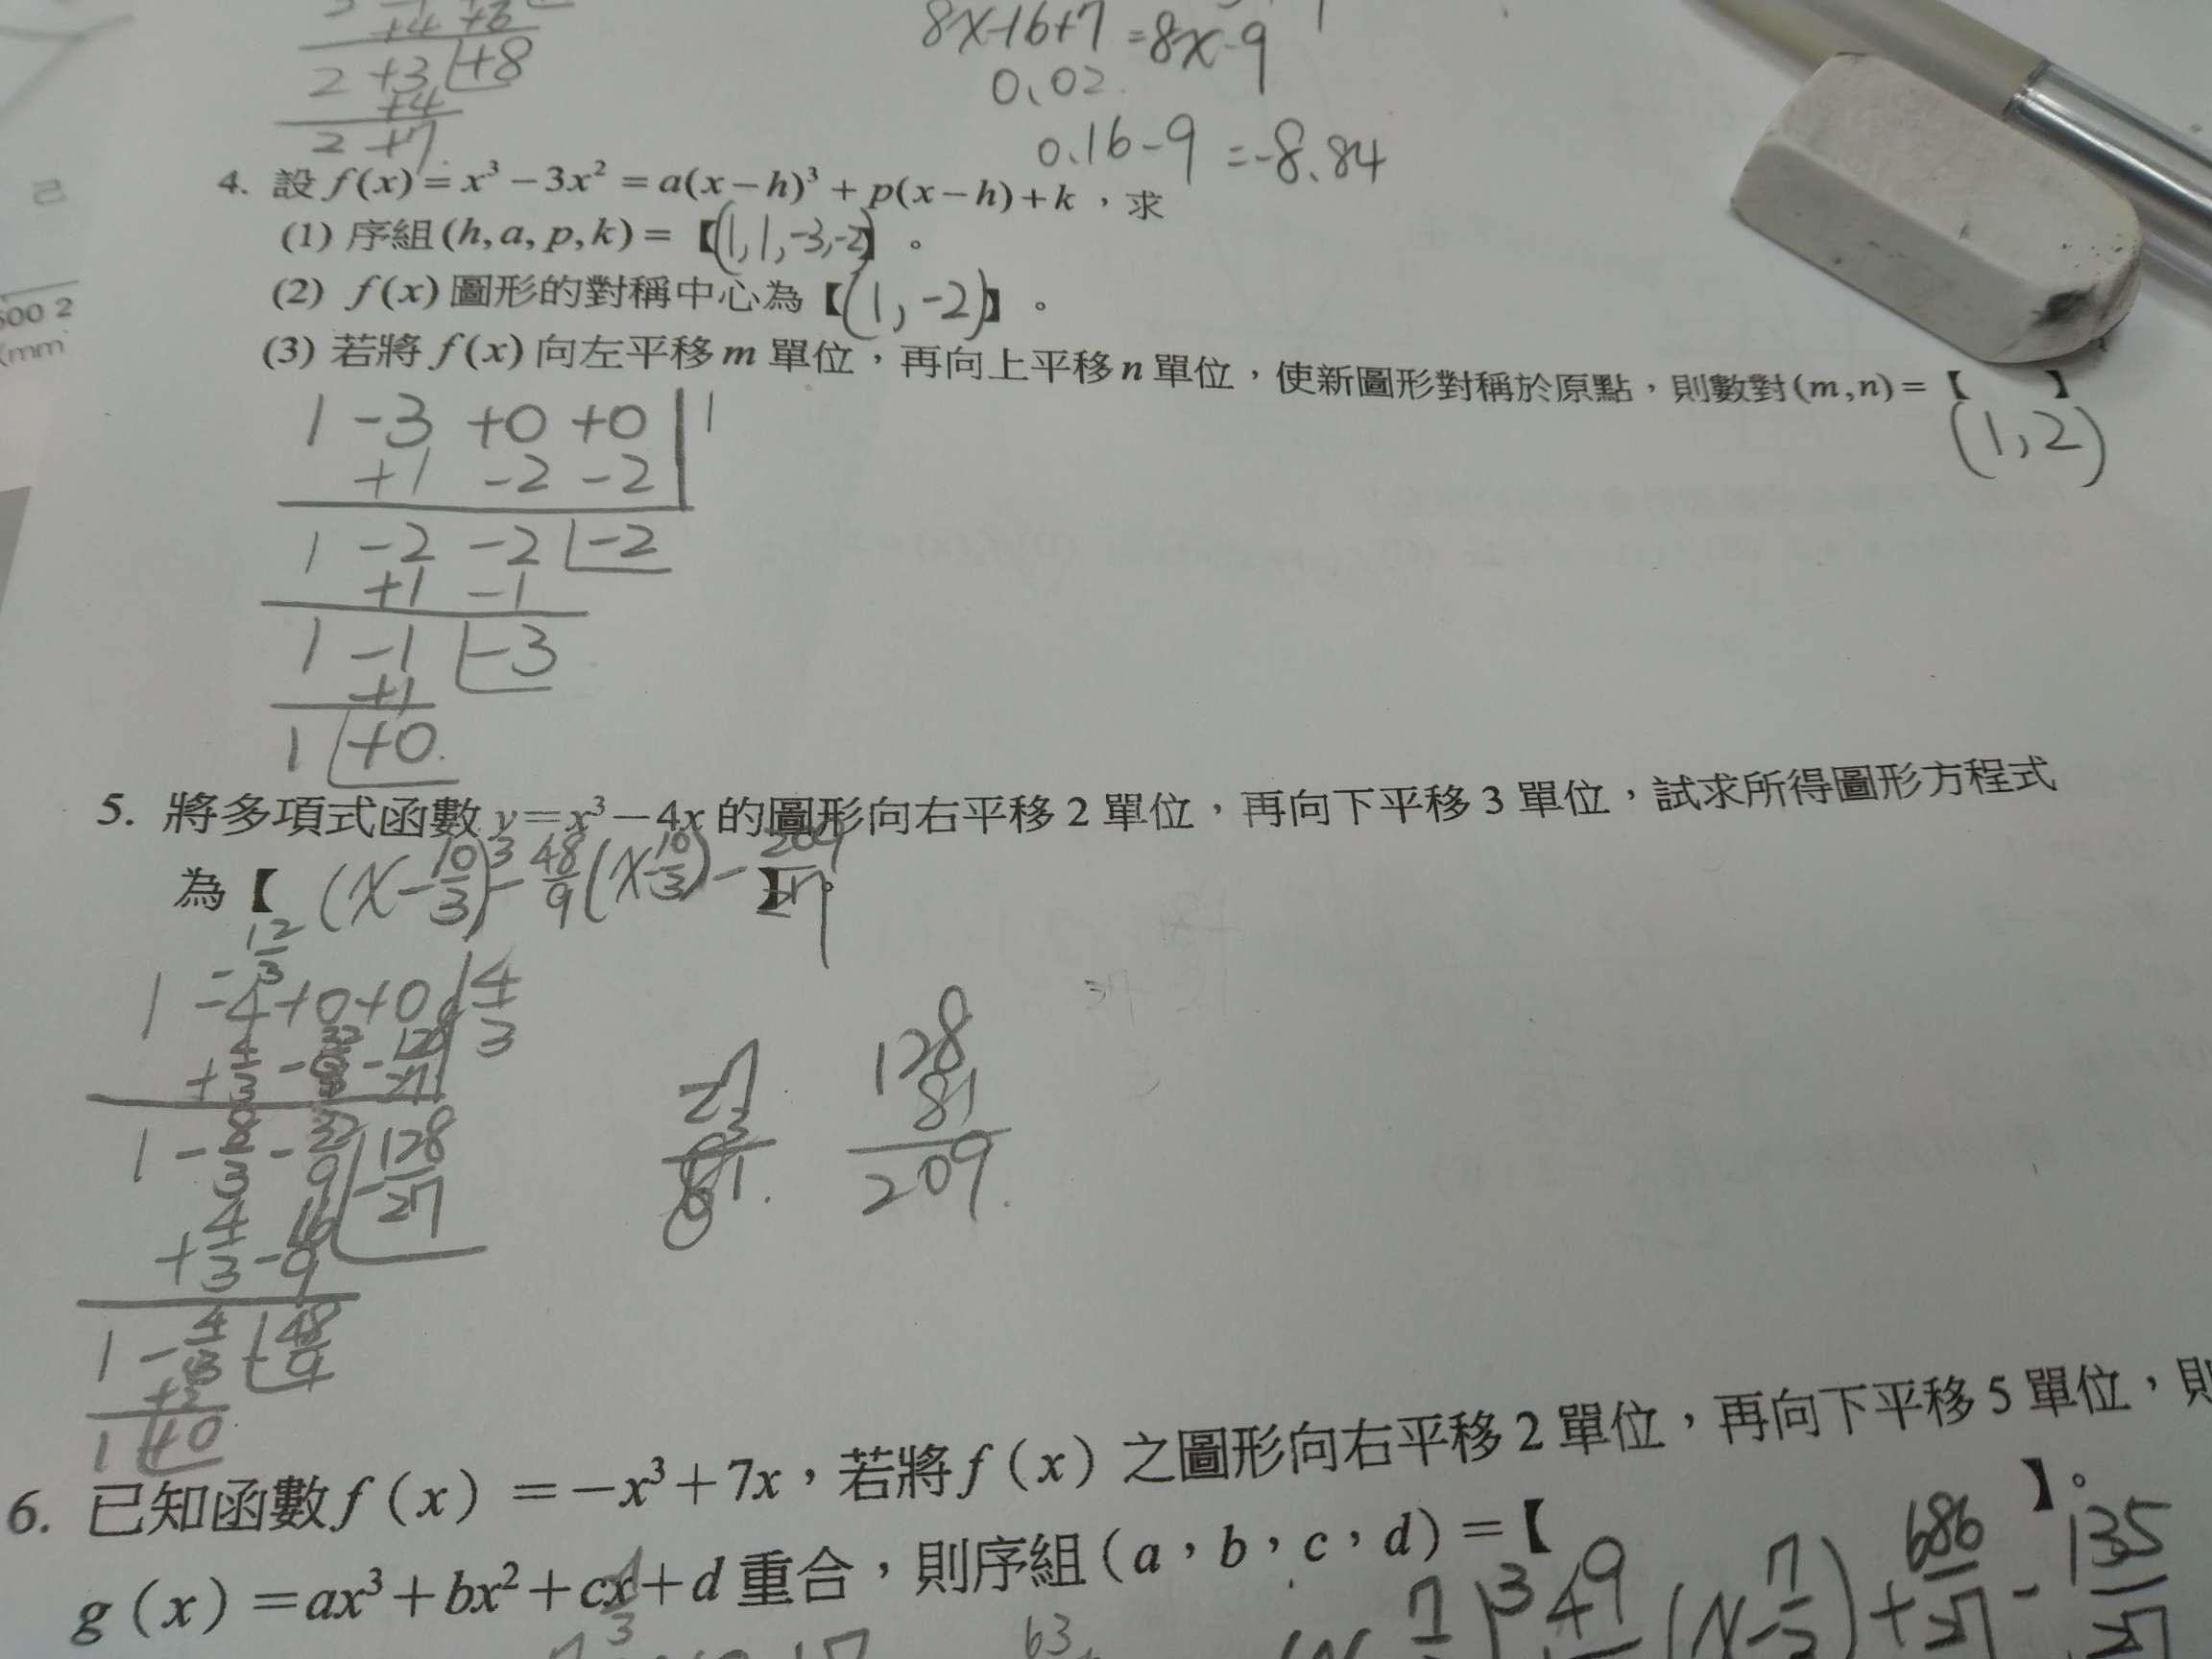 +4 +6
2 +3 +8
+4
2 +7
8x-16+7=8x-9
0.02
0.16-9=-8.84
己
500 2
(mm
4. 設 f(x)=x³-3x²=a(x-h)³+p(x-h)+k,求
(1) 序組(h,a,p,k)=【(1,1,-3,-2)】。
(2) f(x)圖形的對稱中心為【(1,-2)】。
(3) 若將f(x)向左平移m單位,再向上平移n單位,使新圖形對稱於原點,則數對(m,n)=【 】
(1,2)
1 -3 +0 +0 | 1
+1 -2 -2
1 -2 -2 -2
+1 -1
1 -1 -3
+1
1 +0
5. 將多項式函數y=x³-4x的圖形向右平移2單位,再向下平移3單位,試求所得圖形方程式
為【(x-10/3)³-48/9(x-10/3)-209/27】。
-12/3
1 -4+0+0 | 4/3
+4/3 -32/9 -128/27
1 -8/3 -32/9 -128/27
+4/3 -16/9
1 -4/3 -48/9
1 +0
27
3
81
128
81
209
6. 已知函數f(x)=-x³+7x,若將f(x)之圖形向右平移2單位,再向下平移5單位,則
g(x)=ax³+bx²+cx+d重合,則序組(a,b,c,d)=【 】。
63
+686/27-135/27